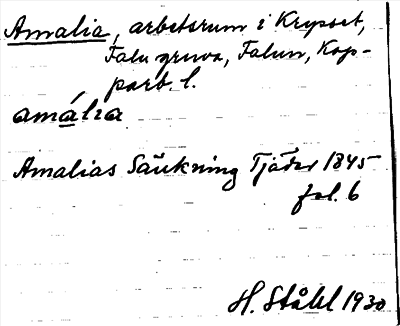 Amalia, arbetsrum i Krypset,
Falu gruva, Falun, Kop-
parb. l.
amália
Amalias Sänkning Tjäder 1845
fol. 6
H. Ståhl 1930